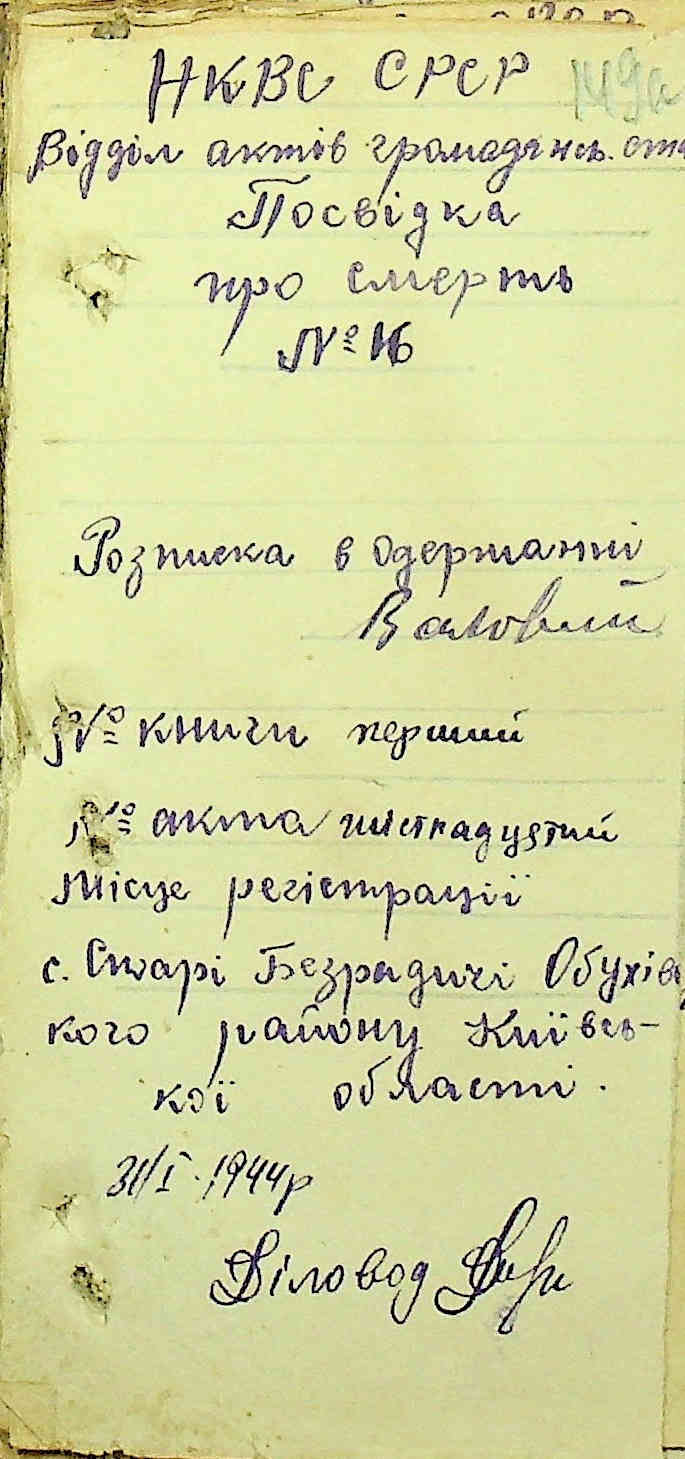 НКВС СРСР 149а
Відділ актів громадянсь. ста
Посвідка
про смерть
№ 16
Розписка в одержанні
Валовий
№ книги перший
№ акта шістнадцятий
Місце регістрації
с. Старі Безрадичі Обухівс
кого району Київсь-
кої області.
31/I. 1944р
Діловод